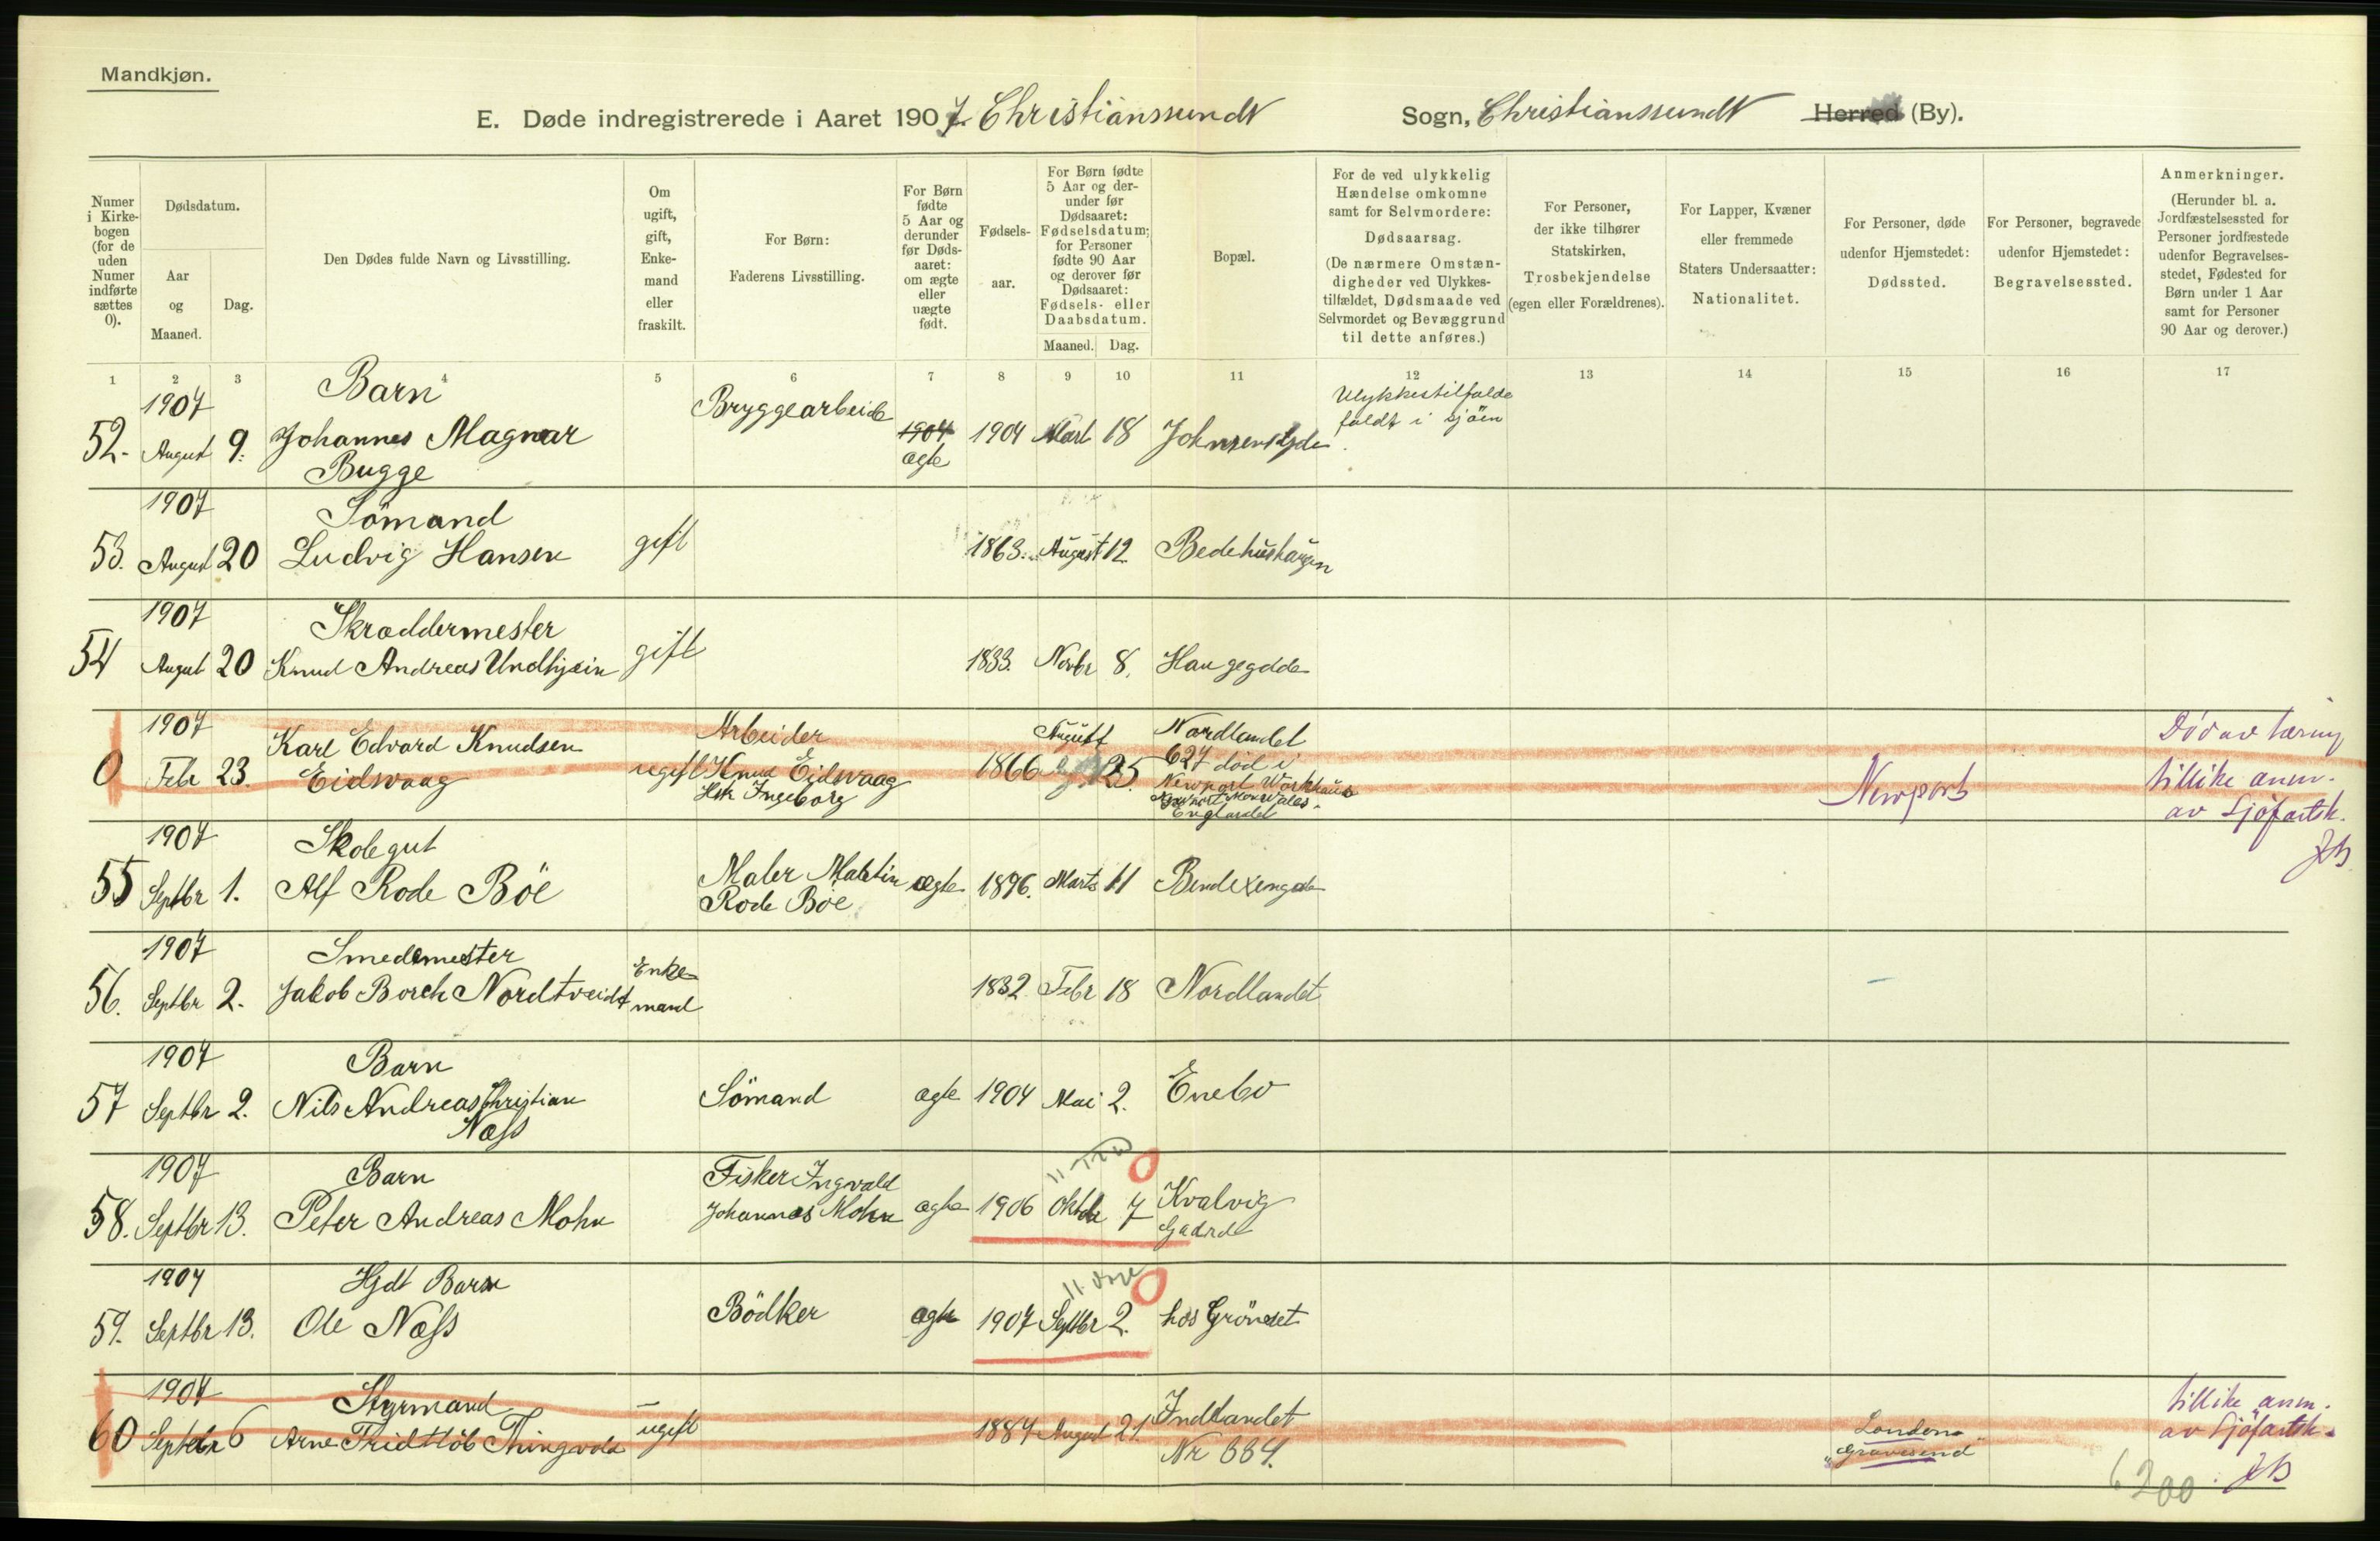 Mandkjøn.
E. Døde indregistrerede i Aaret 1907. Christianssundt Sogn, Christianssundt Herred (By).
Numer i Kirkebogen (for de uden Numer indførte sættes 0).
Dødsdatum.
Aar og Maaned.
Dag.
Den Dødes fulde Navn og Livsstilling.
Om ugift, gift, Enkemand eller fraskilt.
For Børn: Faderens Livsstilling.
For Børn fødte 5 Aar og derunder før Dødsaaret: om ægte eller uægte født.
Fødselsaar.
For Børn fødte 5 Aar og derunder før Dødsaaret: Fødselsdatum; for Personer fødte 90 Aar og derover før Dødsaaret: Fødsels- eller Daabsdatum.
Maaned. Dag.
Bopæl.
For de ved ulykkelig Hændelse omkomne samt for Selvmordere: Dødsaarsag. (De nærmere Omstændigheder ved Ulykkestilfældet, Dødsmaade ved Selvmordet og Bevæggrund til dette anføres.)
For Personer, der ikke tilhører Statskirken, Trosbekjendelse (egen eller Forældrenes).
For Lapper, Kvæner eller fremmede Staters Undersaatter: Nationalitet.
For Personer, døde udenfor Hjemstedet: Dødssted.
For Personer, begravede udenfor Hjemstedet: Begravelsessted.
Anmerkninger. (Herunder bl. a. Jordfæstelsessted for Personer jordfæstede udenfor Begravelsesstedet, Fødested for Børn under 1 Aar samt for Personer 90 Aar og derover.)
1 2 3 4 5 6 7 8 9 10 11 12 13 14 15 16 17
1907 Barn Bryggearbeide Ulykkestilfælde
52. August 9. Johannes Magnar 1904 1904 Mart 18 faldt i sjöen
Bugge ægte
1907 Sömand
53. August 20 Ludvig Hansen gift 1863. August 12. Bedehushaugen
1907 Skræddermester
54 August 20 Knud Andreas Undhjem gift 1833. Novbr 8. Haugegdde
1907 Karl Edvard Knudsen Arbeider August Nordlandet Död av tæring
0 Febr 23. Eidsvaag ugift Knud Eidsvaag 1866 25. 627 död i Newport tillike anm.
Hst Ingeborg Newport Workhaus av Sjöfartsk.
Newport Mon Wales. JB
Englandet
1907 Skolegut
55 Septbr 1. Alf Rode Böe Maler Martin Rode Böe ægte 1896. Marts 11 Bendixengade
1907 Smedemester Enke-
56. Septbr 2. Jakob Borch Nordtveidt mand 1832 Febr 18 Nordlandet
1907 Barn
57 Septbr 2. Nils Andreas Christian Sömand ægte 1904 Mai 2. Enebo
Næss
1907 Barn Fisker Ingvald
58. Septbr 13. Peter Andreas Mohn Johannes Mohn ægte 1906 Oktbr 7 Kvalvig
1907 Hjdt Barn
59. Septbr 13. Ole Næss Bödker ægte 1907 Septbr 2. hos Gröndset
1907 Styrmand Indlandet tillike anm.
60 Septbr 6 Arne Fridtlöb Thingvold ugift 1884 August 21. Nr 334. London av Sjöfartsk.
"Gravesend" JB
6200